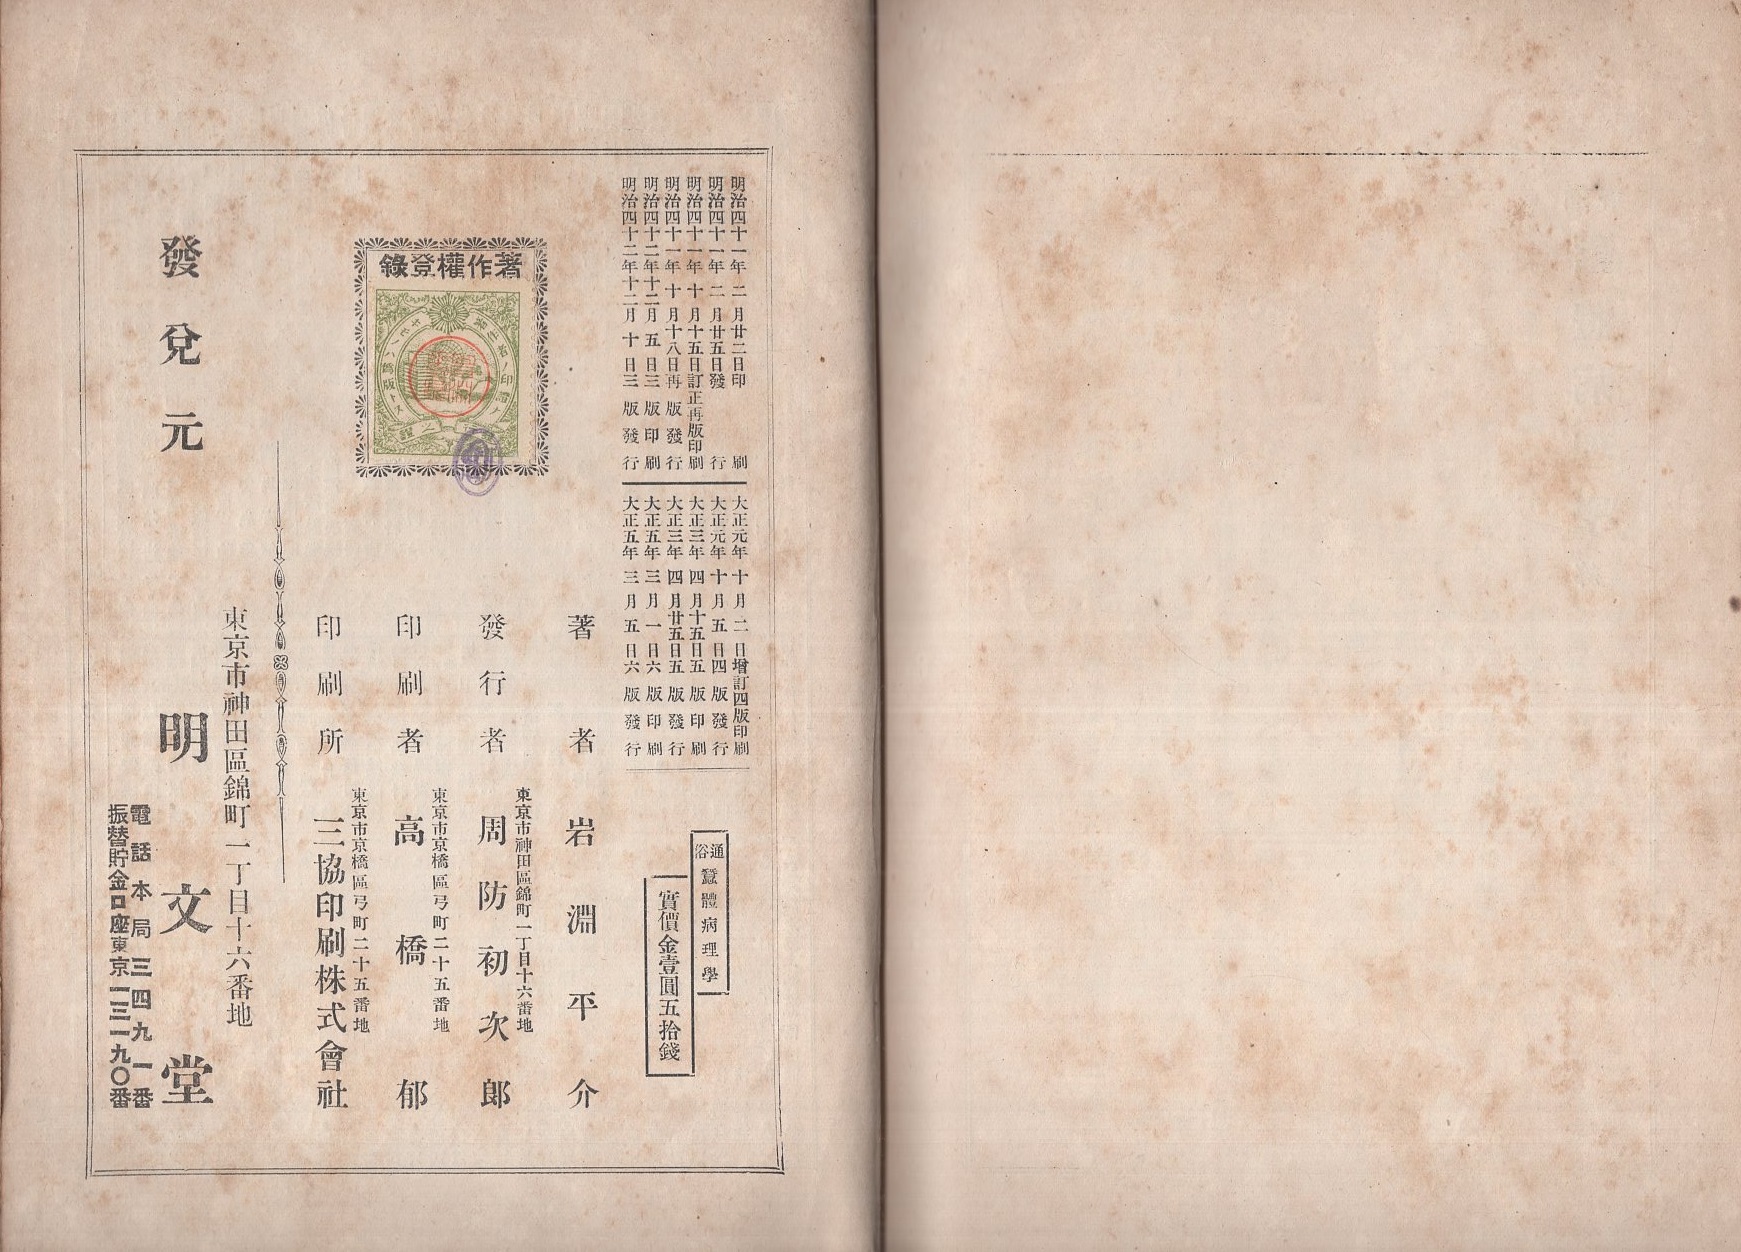 明治四十一年二月廿二日印刷
明治四十一年二月廿五日發行
明治四十一年十月十五日訂正再版印刷
明治四十一年十月十八日再版發行
明治四十二年十二月五日三版印刷
明治四十二年十二月十日三版發行
大正元年十月二日增訂四版印刷
大正元年十月五日四版發行
大正三年四月十五日五版印刷
大正三年四月廿五日五版發行
大正五年三月一日六版印刷
大正五年三月五日六版發行
通俗蠶體病理學
實價金壹圓五拾錢
著作權登錄
著者 岩淵平介
東京市神田區錦町一丁目十六番地
發行者 周防初次郎
東京市京橋區弓町二十五番地
印刷者 高橋郁
東京市京橋區弓町二十五番地
印刷所 三協印刷株式會社
東京市神田區錦町一丁目十六番地
發兌元 明文堂
電話本局三四九一番
振替貯金口座東京一三一九〇番